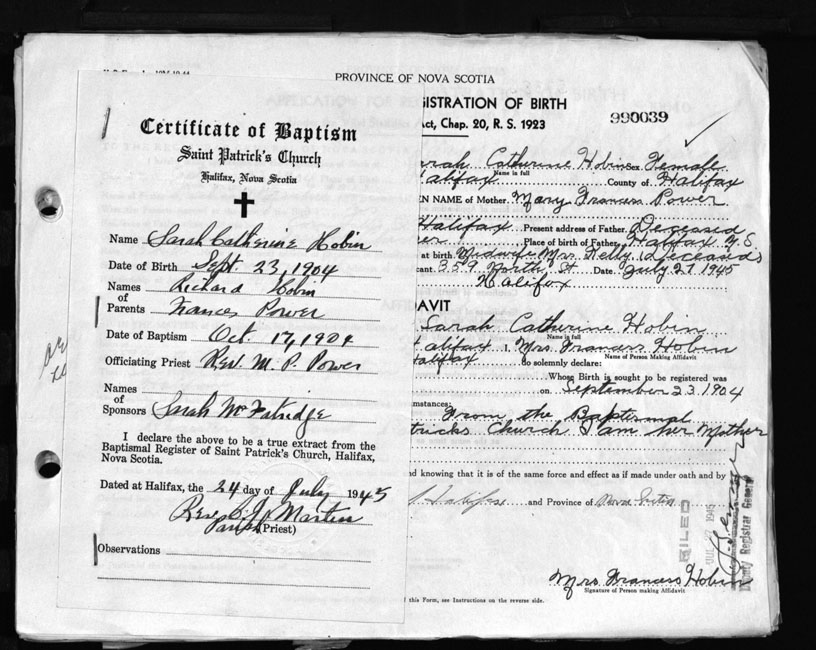 PROVINCE OF NOVA SCOTIA
Certificate of Baptism
Saint Patrick's Church
Halifax, Nova Scotia
Name Sarah Catherine Hobin
Date of Birth Sept. 23, 1904
Names of Parents Richard Hobin
Frances Power
Date of Baptism Oct. 17, 1904
Officiating Priest Rev. M. P. Power
Names of Sponsors
Sarah McFatridge
I declare the above to be a true extract from the
Baptismal Register of Saint Patrick's Church, Halifax,
Nova Scotia.
Dated at Halifax, the 24 day of July 1945
Rev. Martin
(Priest)
Observations
GISTRATION OF BIRTH
Act, Chap. 20, R. S. 1923
990039
arah Catherine Hobin Sex Female
Name in full
Halifax County of Halifax
EN NAME of Mother Mary Frances Power
Halifax Present address of Father Deceased
Place of birth of Father Halifax N.S.
at birth Midwife Mrs. Kelly (Deceased)
cant 359 North St. Date July 27 1945
Halifax
DAVIT
Sarah Catherine Hobin
Name in full
alifax I, Mrs. Frances Hobin
Name of Person Making Affidavit
alifax do solemnly declare:
Whose Birth is sought to be registered was
on September 23 1904
cumstances:
From the Baptismal
tricks Church I am her Mother
nd knowing that it is of the same force and effect as if made under oath and
Halifax and Province of Nova Scotia
FILED
1945
Deputy Registrar General
Mrs. Frances Hobin
Signature of Person making Affidavit
this Form, see Instructions on the reverse side.